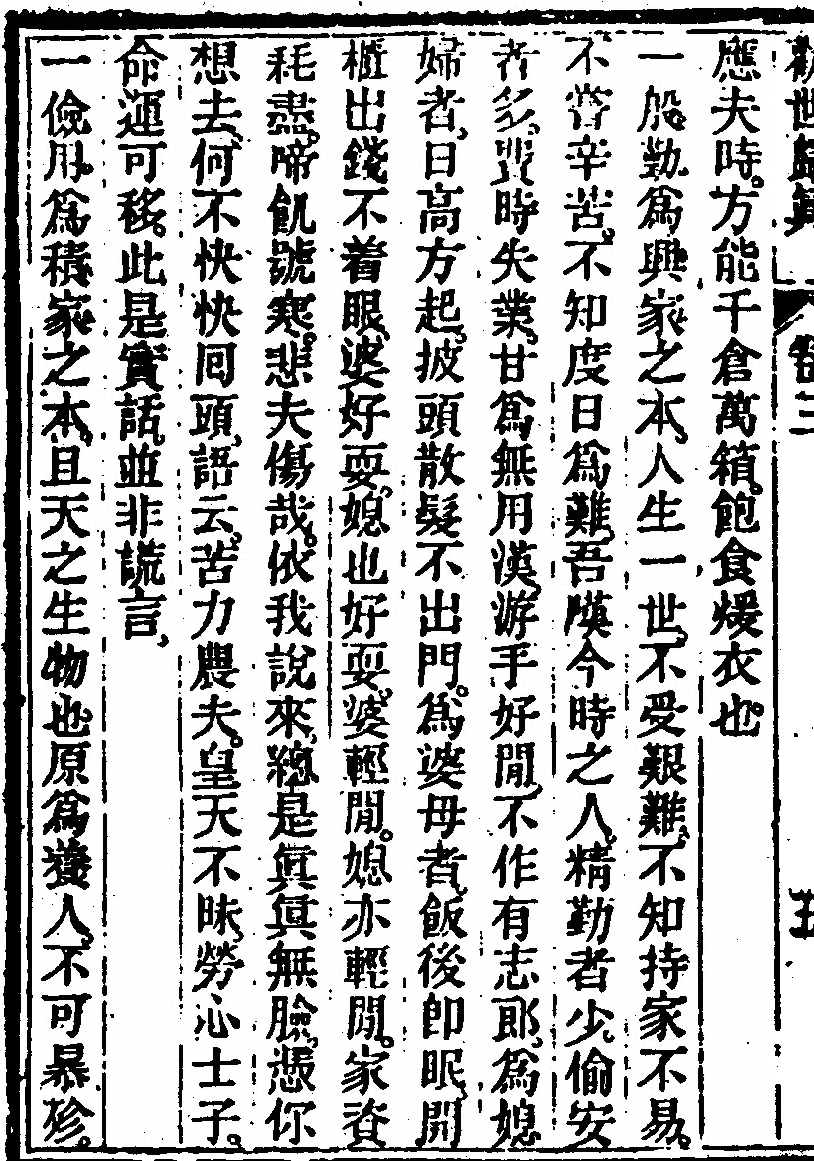 勸世歸眞 卷三 五
應夫時。方能千倉萬箱。飽食煖衣也。
一般勤爲興家之本。人生一世、不受艱難、不知持家不易。
不嘗辛苦。不知度日爲難、吾嘆今時之人。精勤者少。偷安
者多、費時失業。甘爲無用漢、游手好閒、不作有志郎、爲媳
婦者、日高方起。披頭散髮不出門。爲婆母者、飯後卽眠、開
櫃出錢不着眼、婆好耍、媳也好耍。婆輕閒。媳亦輕閒。家資
耗盡。啼飢號寒。悲夫傷哉。依我說來、總是眞眞無臉、憑你
想去、何不快快囘頭、語云。苦力農夫。皇天不昧、勞心士子。
命運可移。此是實話、並非謊言、
一儉用。爲積家之本、且天之生物也。原爲養人、不可暴殄。